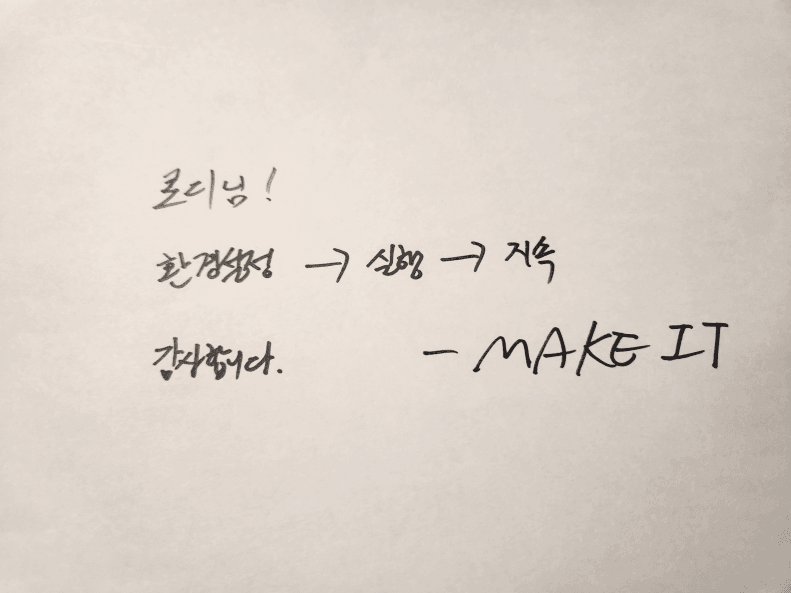 로디님!
환경설정 → 실행 → 지속
감사합니다. - MAKE IT